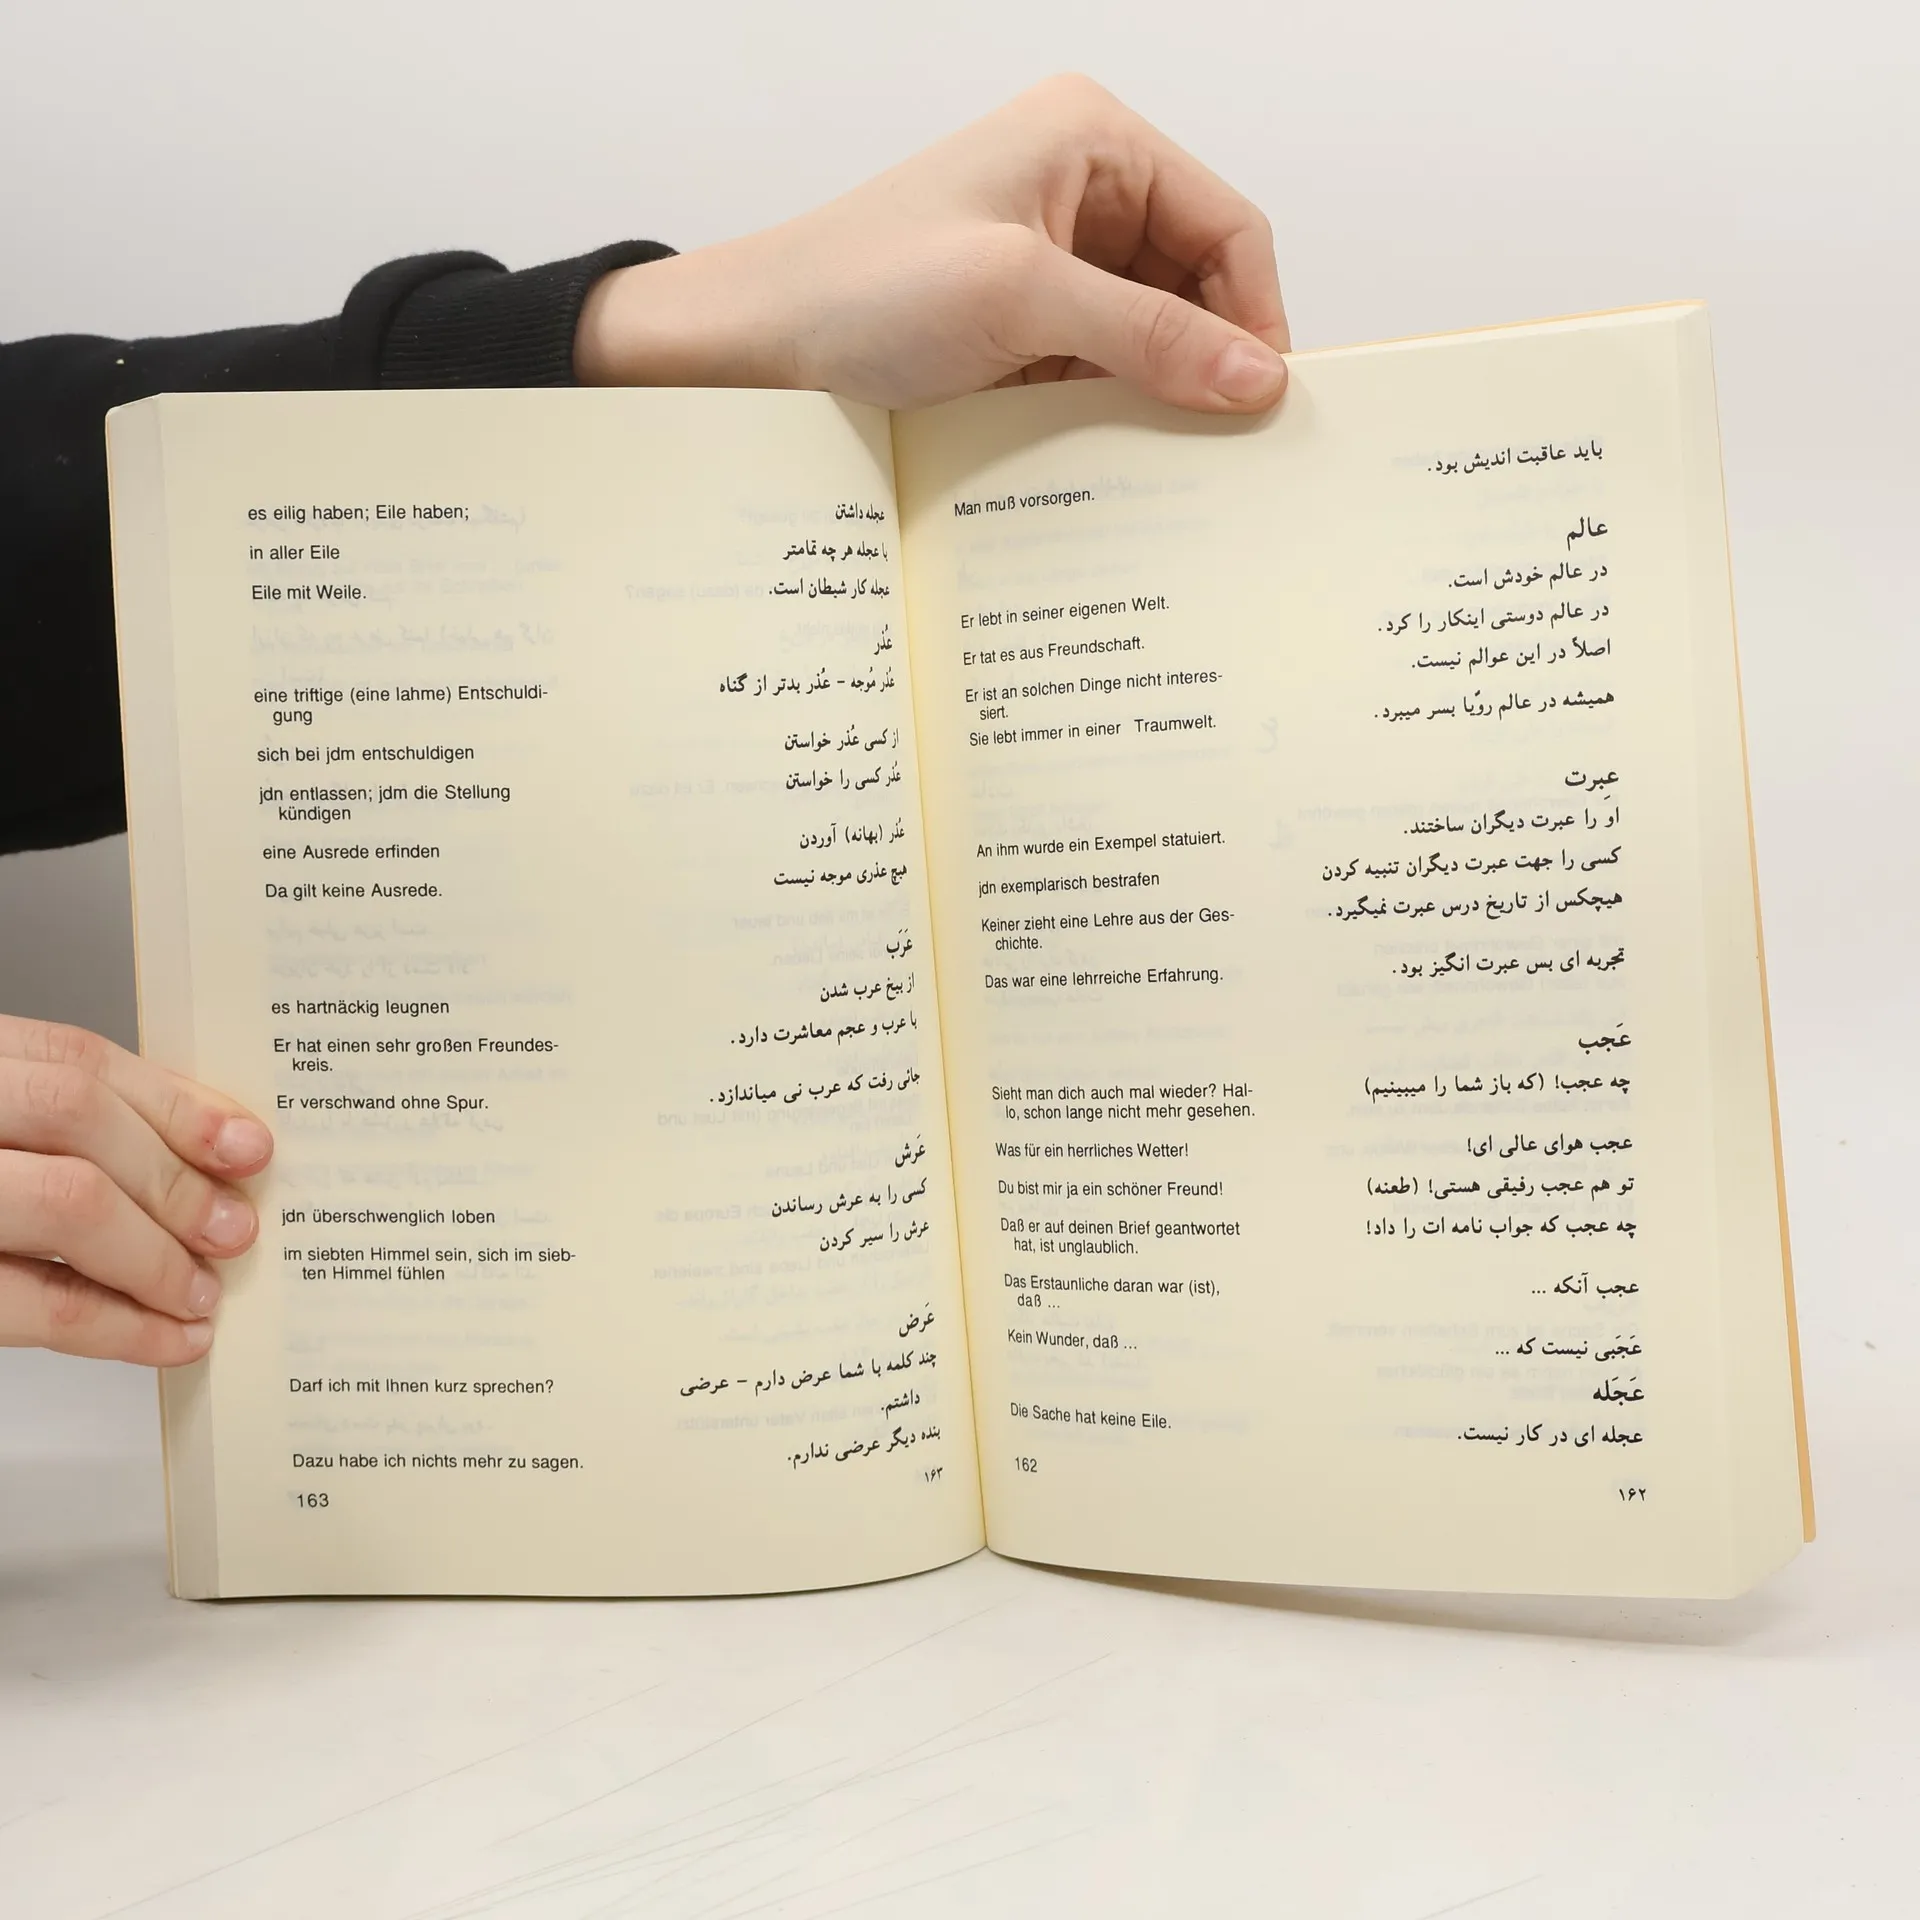 باید عاقبت اندیش بود.
Man muß vorsorgen.
عالم
در عالم خودش است.
Er lebt in seiner eigenen Welt.
در عالم دوستی اینکار را کرد.
Er tat es aus Freundschaft.
اصلاً در این عوالم نیست.
Er ist an solchen Dinge nicht interes-
siert.
همیشه در عالم رؤیا بسر میبرد.
Sie lebt immer in einer Traumwelt.
عِبرت
او را عبرت دیگران ساختند.
An ihm wurde ein Exempel statuiert.
کسی را جهت عبرت دیگران تنبیه کردن
jdn exemplarisch bestrafen
هیچکس از تاریخ درس عبرت نمیگیرد.
Keiner zieht eine Lehre aus der Ges-
chichte.
تجربه ای بس عبرت انگیز بود.
Das war eine lehrreiche Erfahrung.
عَجب
چه عجب! (که باز شما را میبینیم)
Sieht man dich auch mal wieder? Hal-
lo, schon lange nicht mehr gesehen.
عجب هوای عالی ای!
Was für ein herrliches Wetter!
تو هم عجب رفیقی هستی! (طعنه)
Du bist mir ja ein schöner Freund!
چه عجب که جواب نامه ات را داد!
Daß er auf deinen Brief geantwortet
hat, ist unglaublich.
عجب آنکه ...
Das Erstaunliche daran war (ist),
daß ...
عَجَبی نیست که ...
Kein Wunder, daß ...
عَجَله
عجله ای در کار نیست.
Die Sache hat keine Eile.
162
۱۶۲
عجله داشتن
es eilig haben; Eile haben;
با عجله هر چه تمامتر
in aller Eile
عجله کار شیطان است.
Eile mit Weile.
عُذر
عُذر مُوجه – عُذر بدتر از گناه
eine triftige (eine lahme) Entschuldi-
gung
از کسی عُذر خواستن
sich bei jdm entschuldigen
عُذر کسی را خواستن
jdn entlassen; jdm die Stellung
kündigen
عُذر (بهانه) آوردن
eine Ausrede erfinden
هیچ عذری موجه نیست
Da gilt keine Ausrede.
عَرَب
از بیخ عرب شدن
es hartnäckig leugnen
با عرب و عجم معاشرت دارد.
Er hat einen sehr großen Freundes-
kreis.
جائی رفت که عرب نی میاندازد.
Er verschwand ohne Spur.
عَرش
کسی را به عرش رساندن
jdn überschwenglich loben
عرش را سیر کردن
im siebten Himmel sein, sich im sieb-
ten Himmel fühlen
عَرض
چند کلمه با شما عرض دارم – عرضی
داشتم.
Darf ich mit Ihnen kurz sprechen?
بنده دیگر عرضی ندارم.
Dazu habe ich nichts mehr zu sagen.
163
۱۶۳